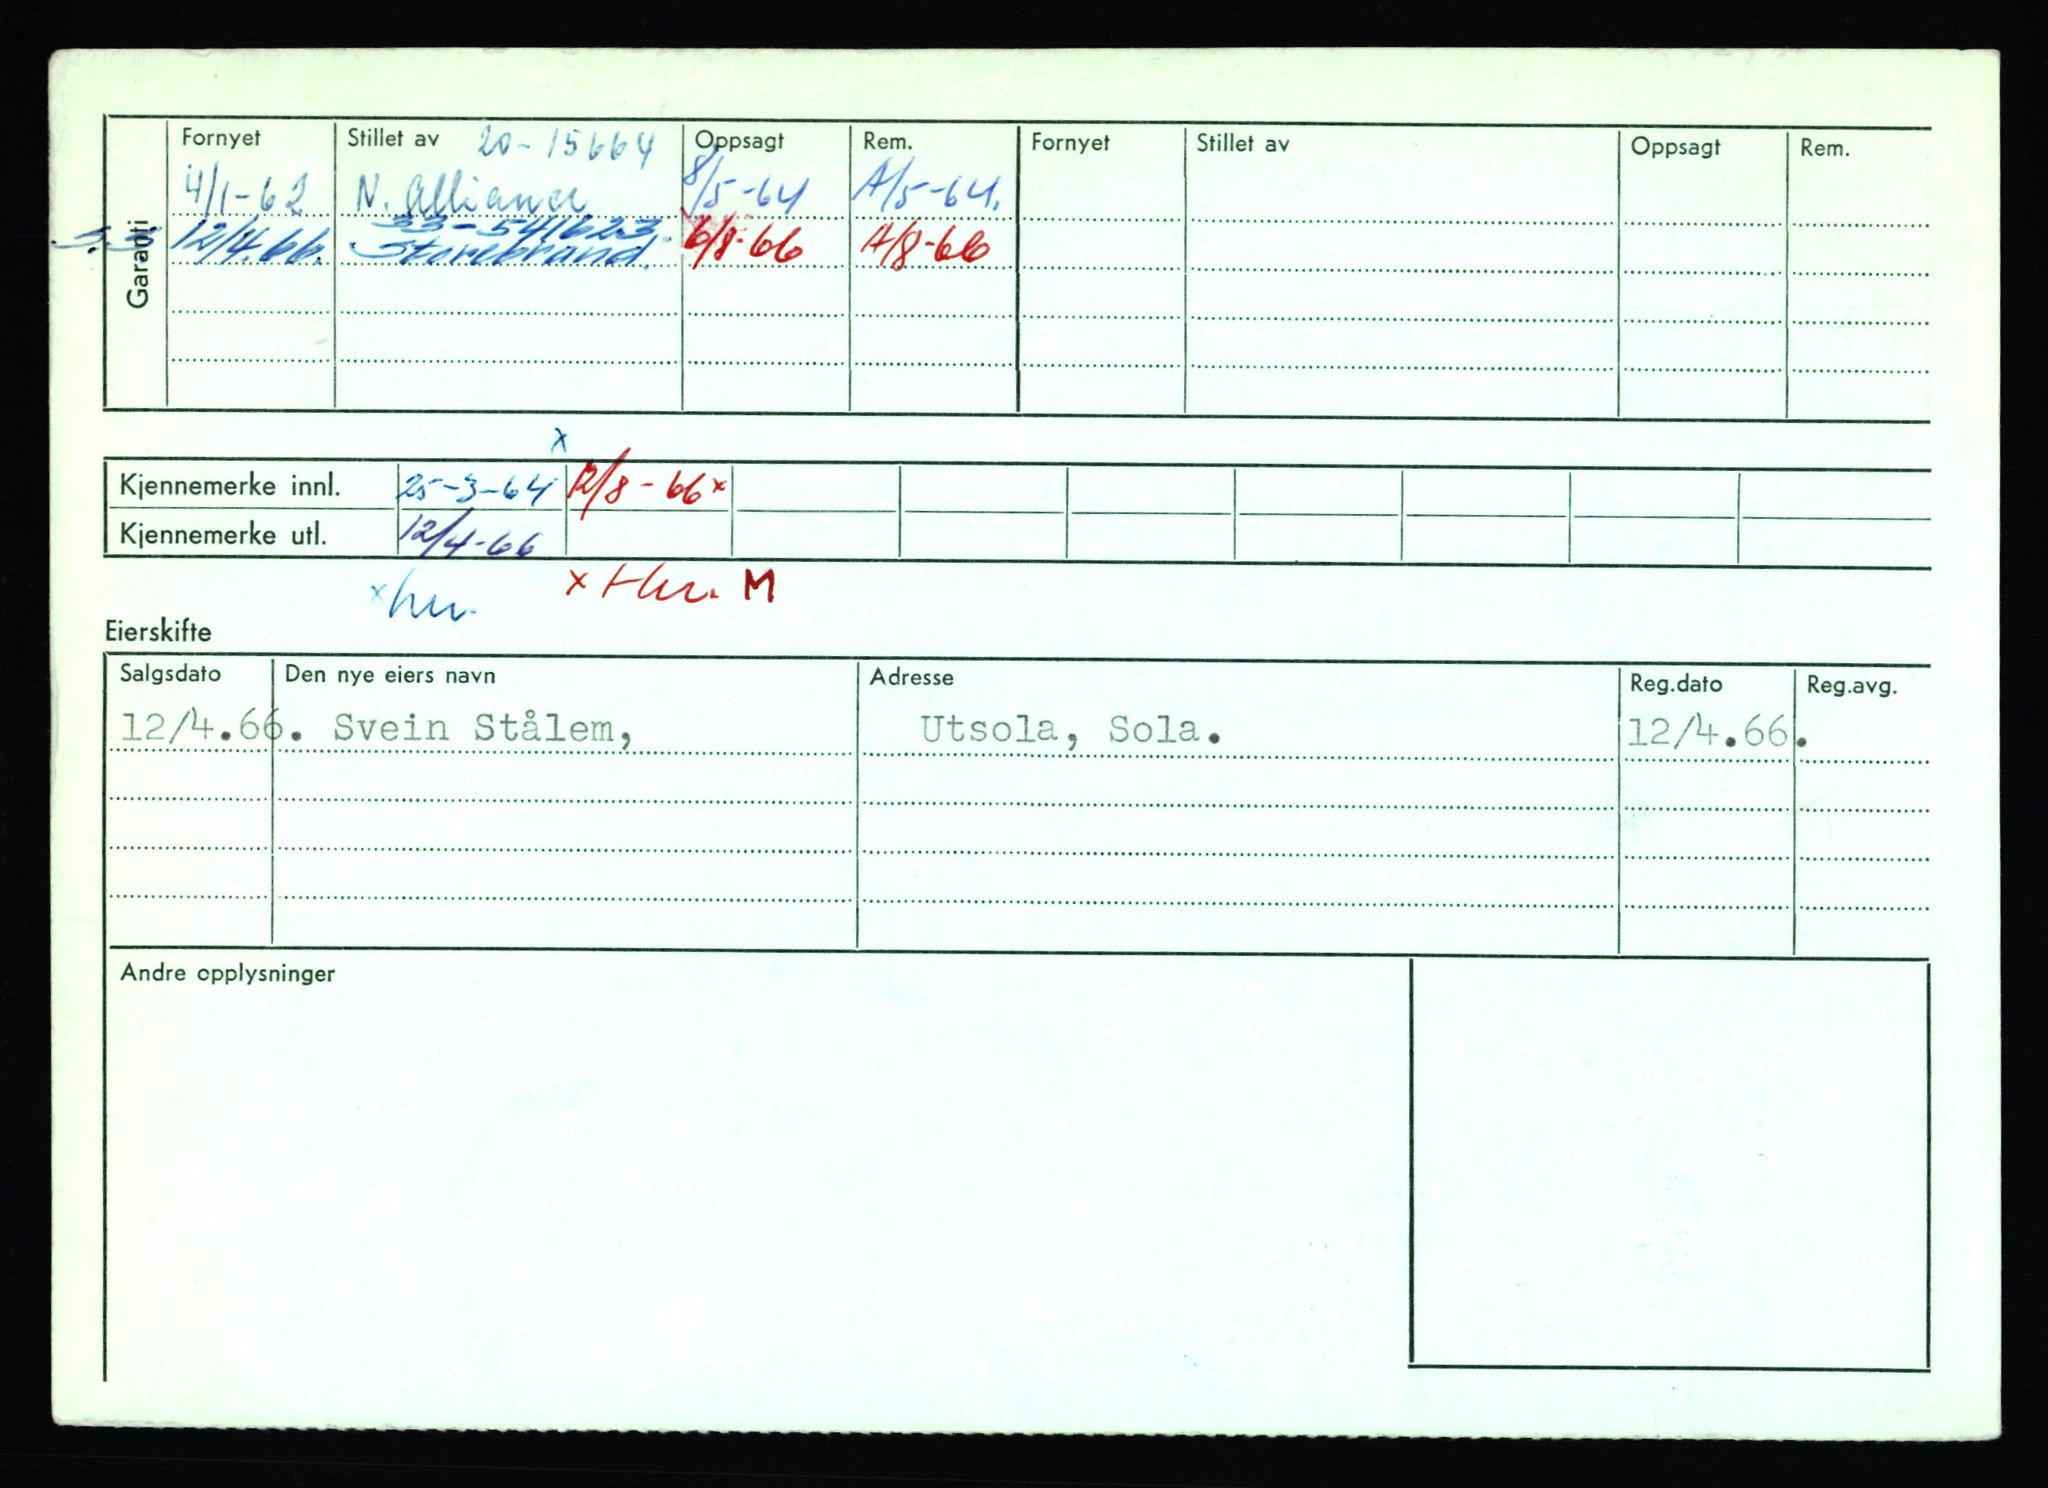 Fornyet Stillet av 20-15664 Oppsagt Rem. Fornyet Stillet av Oppsagt Rem.
4/1-62 N. Alliance 8/5-64 A/5-64.
33-541623
12/4.66. Storebrand. 6/8-66 A/8-66
Garanti
x
Kjennemerke innl. 25-3-64 12/8-66 x
Kjennemerke utl. 12/4-66
x hr. x Hr. M
Eierskifte
Salgsdato Den nye eiers navn Adresse Reg.dato Reg.avg.
12/4.66. Svein Stålem, Utsola, Sola. 12/4.66.
Andre opplysninger